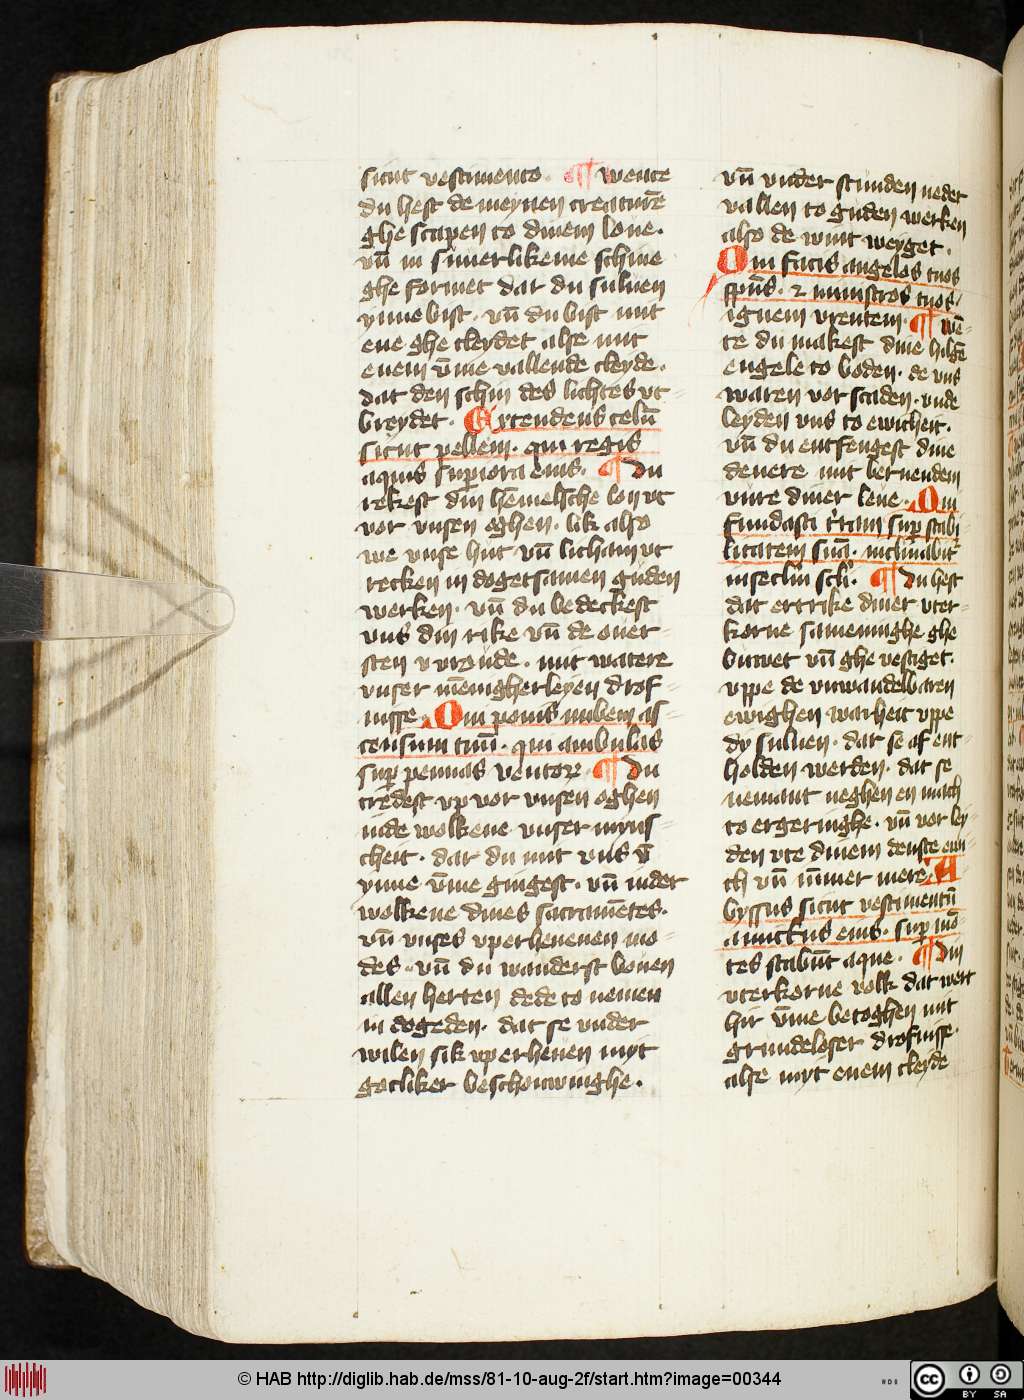 sicut vestimento. ¶ wente
du hest de meynen creatur̄e
ghe scapen to dinem loue.
vn̄ in sunerlikeme schine
ghe formet dar du suluen
ynne bist. vn̄ du bist mit
eue ghe cleydet alse mit
enem v̄me vallende cleyde.
dat den schin des lichtes vt-
breydet. Extendens celū
sicut pellem. qui regis
aquis superiora eius. ¶ du
rekest din hēmelsche lon vt
vor vnsen oghen. lik also
we vnse hut vn̄ licham vt
recken in dogetsamen guden
werken. vn̄ du bedeckest
vns din rike vn̄ de ouer-
sten vrōude. mit watere
vnser mēnigherleyen drof-
nisse. Qui ponis nubem as-
censum tuū. qui ambulas
sup pennas ventoꝝ. ¶ du
tredest vp vor vnsen oghen
inde wolkene vnser myns-
cheit. dar du mit vns v̄
ynne v̄me gingest. vn̄ inder
wolkene dines sacramētes.
vn̄ vnses vperheuenen mo-
des. vn̄ du wanderst bouen
allen herten dede to nemen
in dogeden. dat se vnder
wilen sik vperheuen myt
gotliker beschouwinghe.
vn̄ vnder stunden nedet
vallen to guden werken
also de wint weyget.
Qui facis angelos tuos
sp̄us. ⁊ ministros tuos.
ignem vrentem. ¶ wē-
te du makest dine hilgē
engele to boden. de vns
waren vor scaden. vnde
leyden vns to ewicheit.
vn̄ du entfengest dine
denere mit bernendem
vure diner leue. Qui
fundasti t'ram sup stabi
litatem suā. inclinabit'
in sec̄lm sc̄li. ¶ du hest
dat ertrike diner vter-
korne sameninghe ghe
buwet vn̄ ghe vestiget.
vppe de vnwandelbaren
ewighen warheit vppe
dy suluen. dat se af ent-
holden werden. dat se
nemant neghen en mach
to ergeringhe. vn̄ vor ley-
den vte dinem denste ewi-
ch vn̄ ūmer mere. A
byssus sicut vestimentū
amictus eius. sup mō-
tes stabūt aque. ¶ din
vterkorne volk dat wert
hir v̄me betoghen mit
grundeloser drofnisse.
alse myt enem cleyde
© HAB http://diglib.hab.de/mss/81-10-aug-2f/start.htm?image=00344
cc BY SA